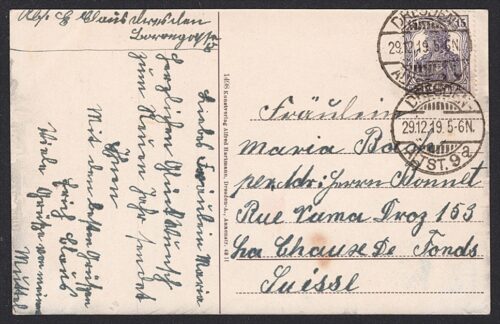 Abs. E Claus Dresden
Liebes Fräulein Maria
herzlichen Glückwunsch
zum Neuen Jahr sendet
Ihnen
Mit den besten Grüßen
Erich Claus
Viele Grüße von meiner
Mutter
1468 Kunstverlag Alfred Hartmann, Dresden-A.
15
DRESDEN
29.12.19.5-6N.
DRESDEN
29.12.19.5-6N.
Fräulein
Maria
per. Adr: Herrn
Rue Droz 153
La Chaux De Fonds
Suisse